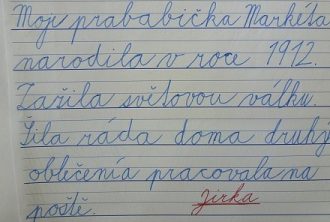 Moje prababička Markéta
narodila v roce 1912.
Zažila světovou válku.
Šila ráda doma druhý
oblečenía pracovala na
poště. Jirka